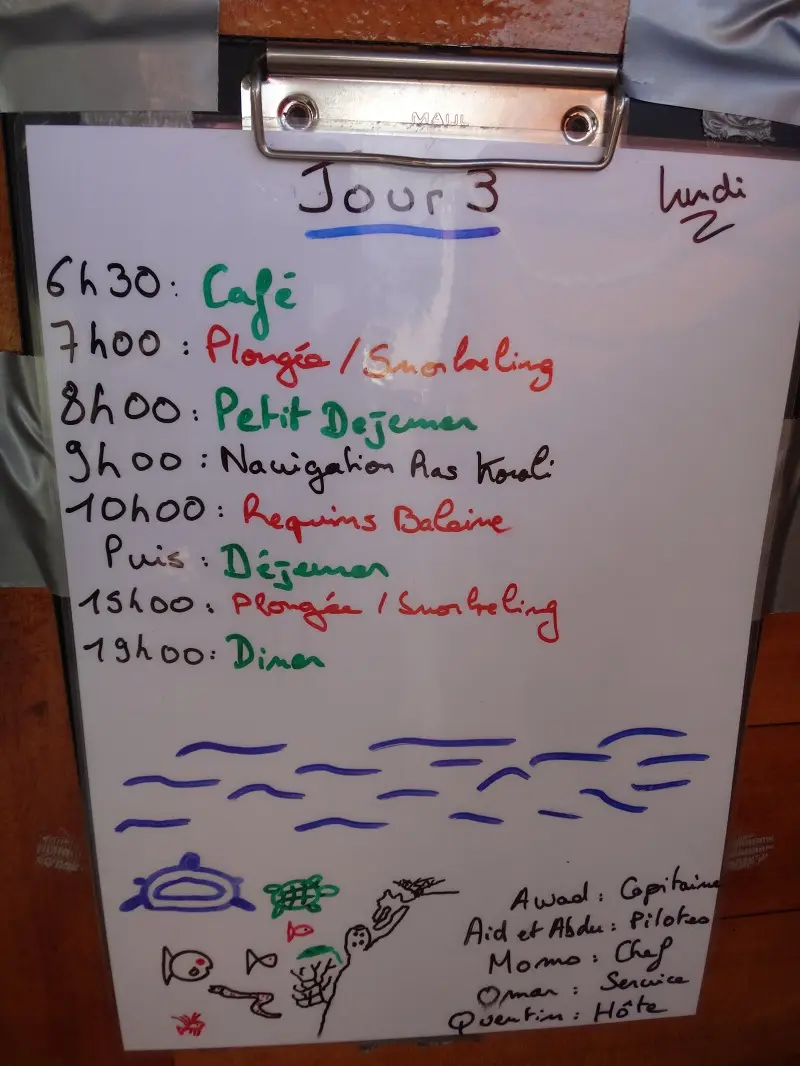 MAUL
Jour 3
Lundi
6h30: Café
7h00: Plongée / Snorkeling
8h00: Petit Dejeuner
9h00: Navigation Ras Korali
10h00: Requins Baleine
Puis: Déjeuner
15h00: Plongée / Snorkeling
19h00: Diner
Awad: Capitaine
Aid et Abdu: Pilotes
Momo: Chef
Omar: Service
Quentin: Hôte